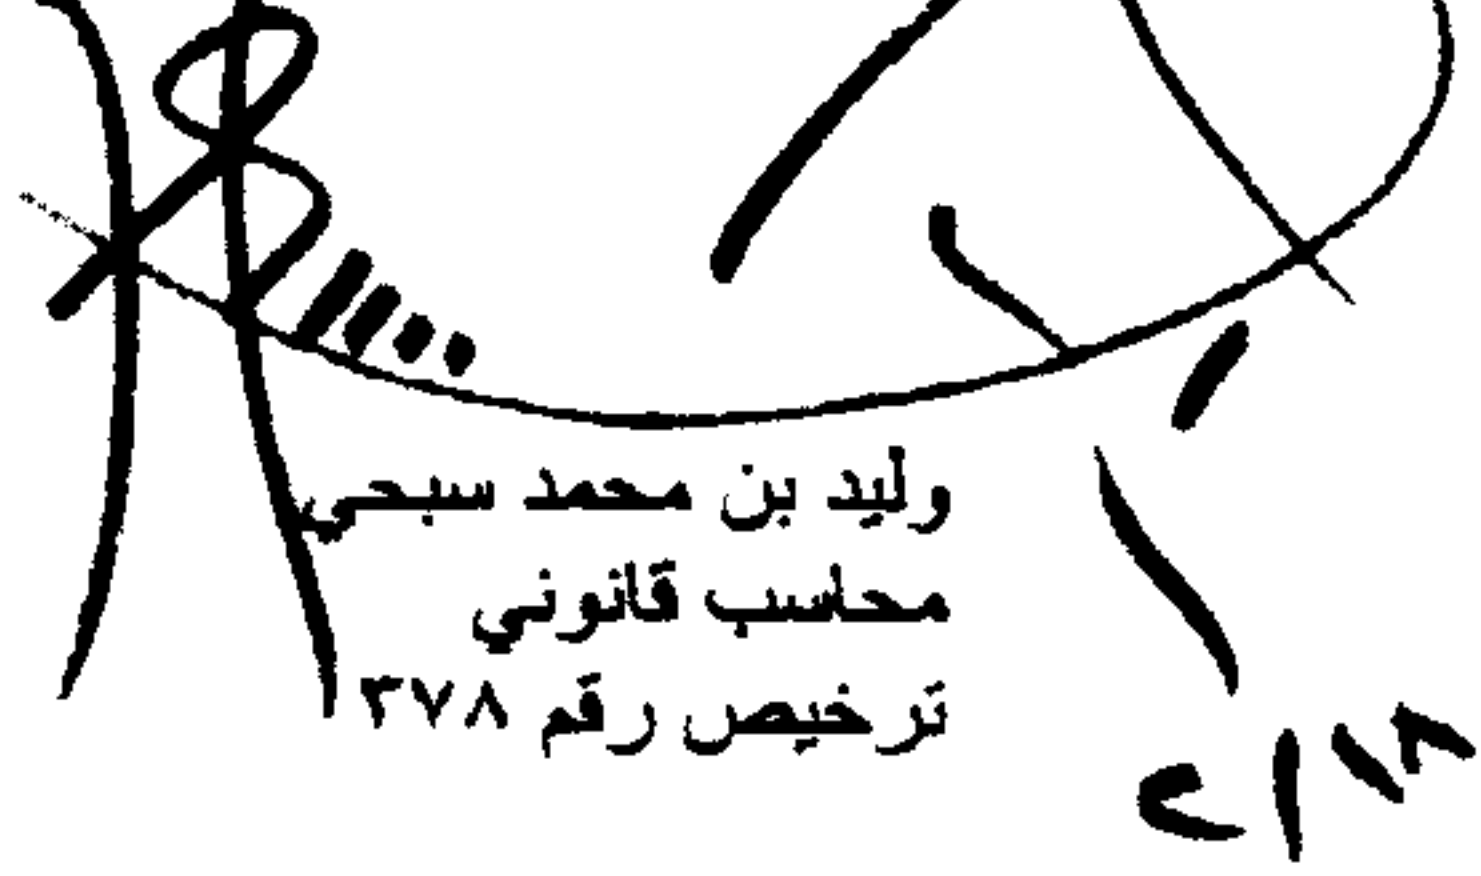 وليد بن محمد سبحي
محاسب قانوني
ترخيص رقم ٣٧٨